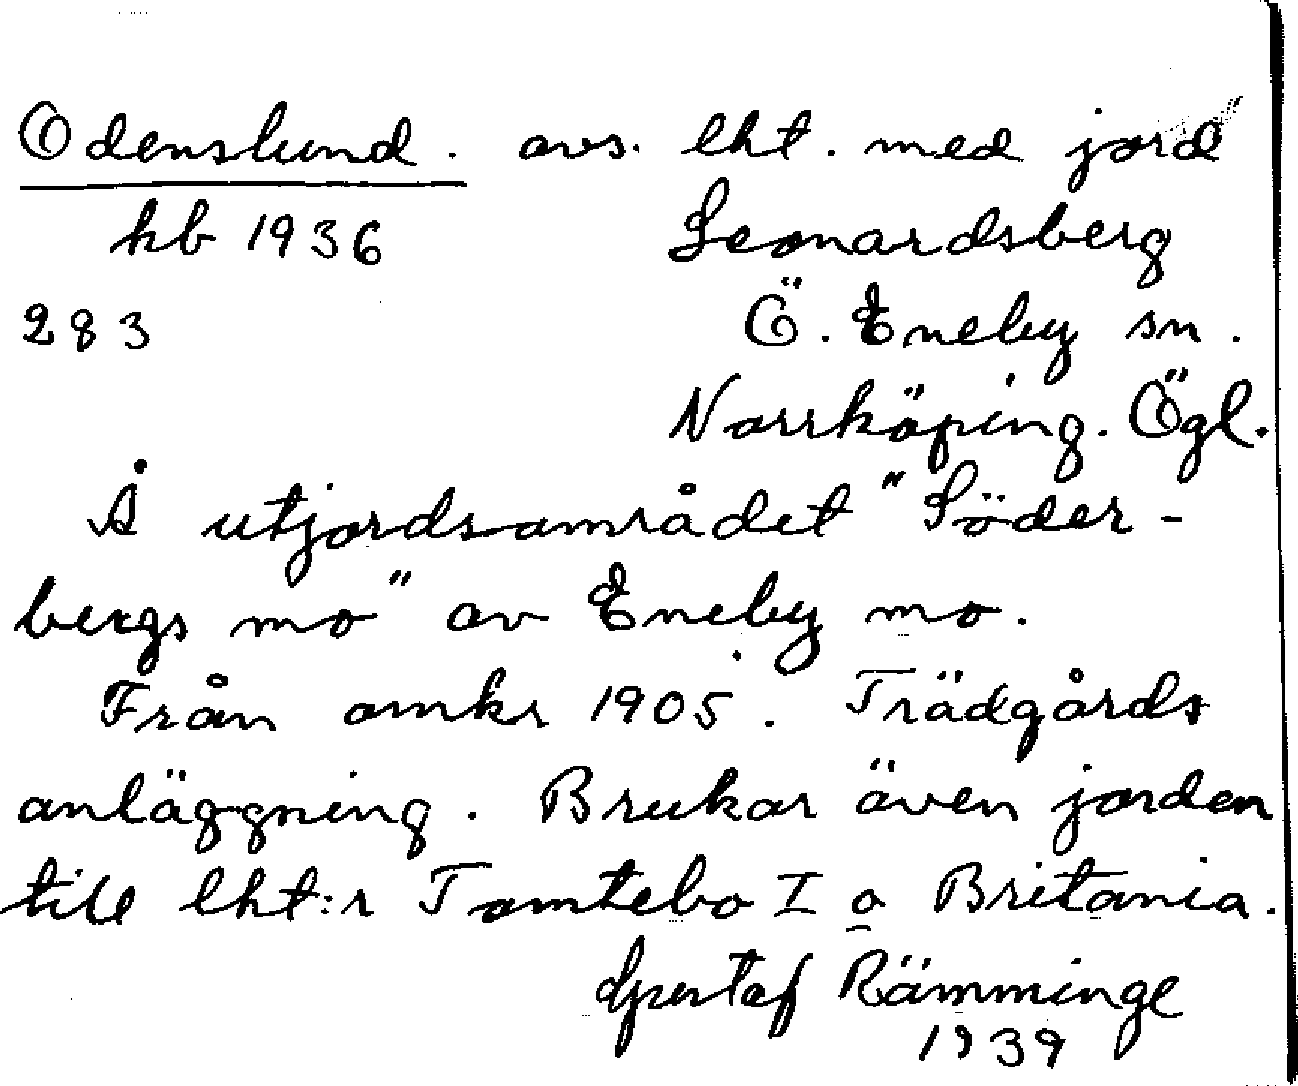 Odenslund. avs. lht. med jord
kb 1936 Leonardsberg
283 Ö. Eneby sn.
Norrköping. Ögl.
Å utjordsområdet "Söder-
bergs mo" av Eneby mo.
Från omkr 1905. Trädgårds
anläggning. Brukar även jorden
till lht:r Tomtebo I o Britania.
Gustaf Rämminge
1939